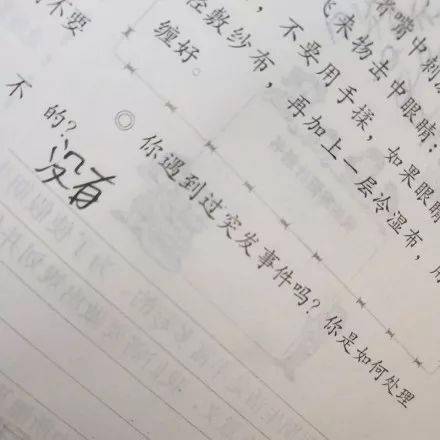 嘴中刺
飞来物击中眼睛;
,不要用手揉,如果眼睛
敷纱布,再加上一层冷湿布,用
缠好。
不要
◎ 你遇到过突发事件吗?你是如何处理
的?
不
没有